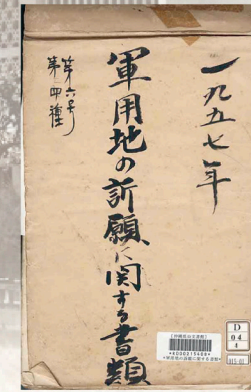 一九五七年
軍用地の訴願に関する書類
第六号
第四種
D
04
1